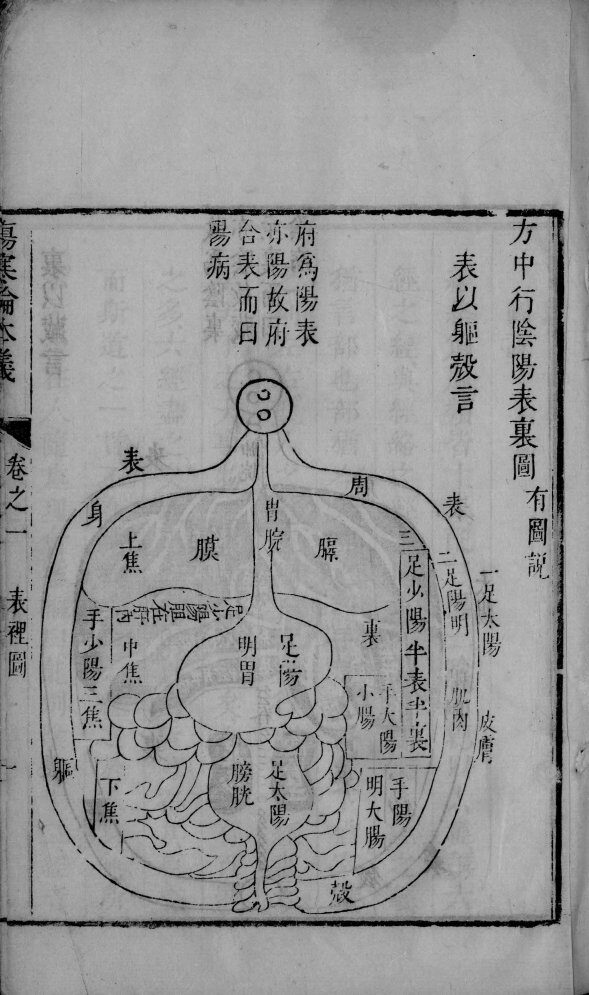 方中行陰陽表裏圖 有圖説
表以軀殼言
府為陽表
亦陽故府
合表而曰
陽病
傷寒論本義
卷之一
表裡圖
一
一足太陽 皮膚
表
二足陽明 肌肉
三足少陽半表半裏
周
表
身
軀
殼
胃脘
膈
膜
上焦
裏
足少陽膽在肝內
中焦
手少陽三焦
足陽
明胃
手太陽
小腸
足太陽
膀胱
手陽
明大腸
下焦